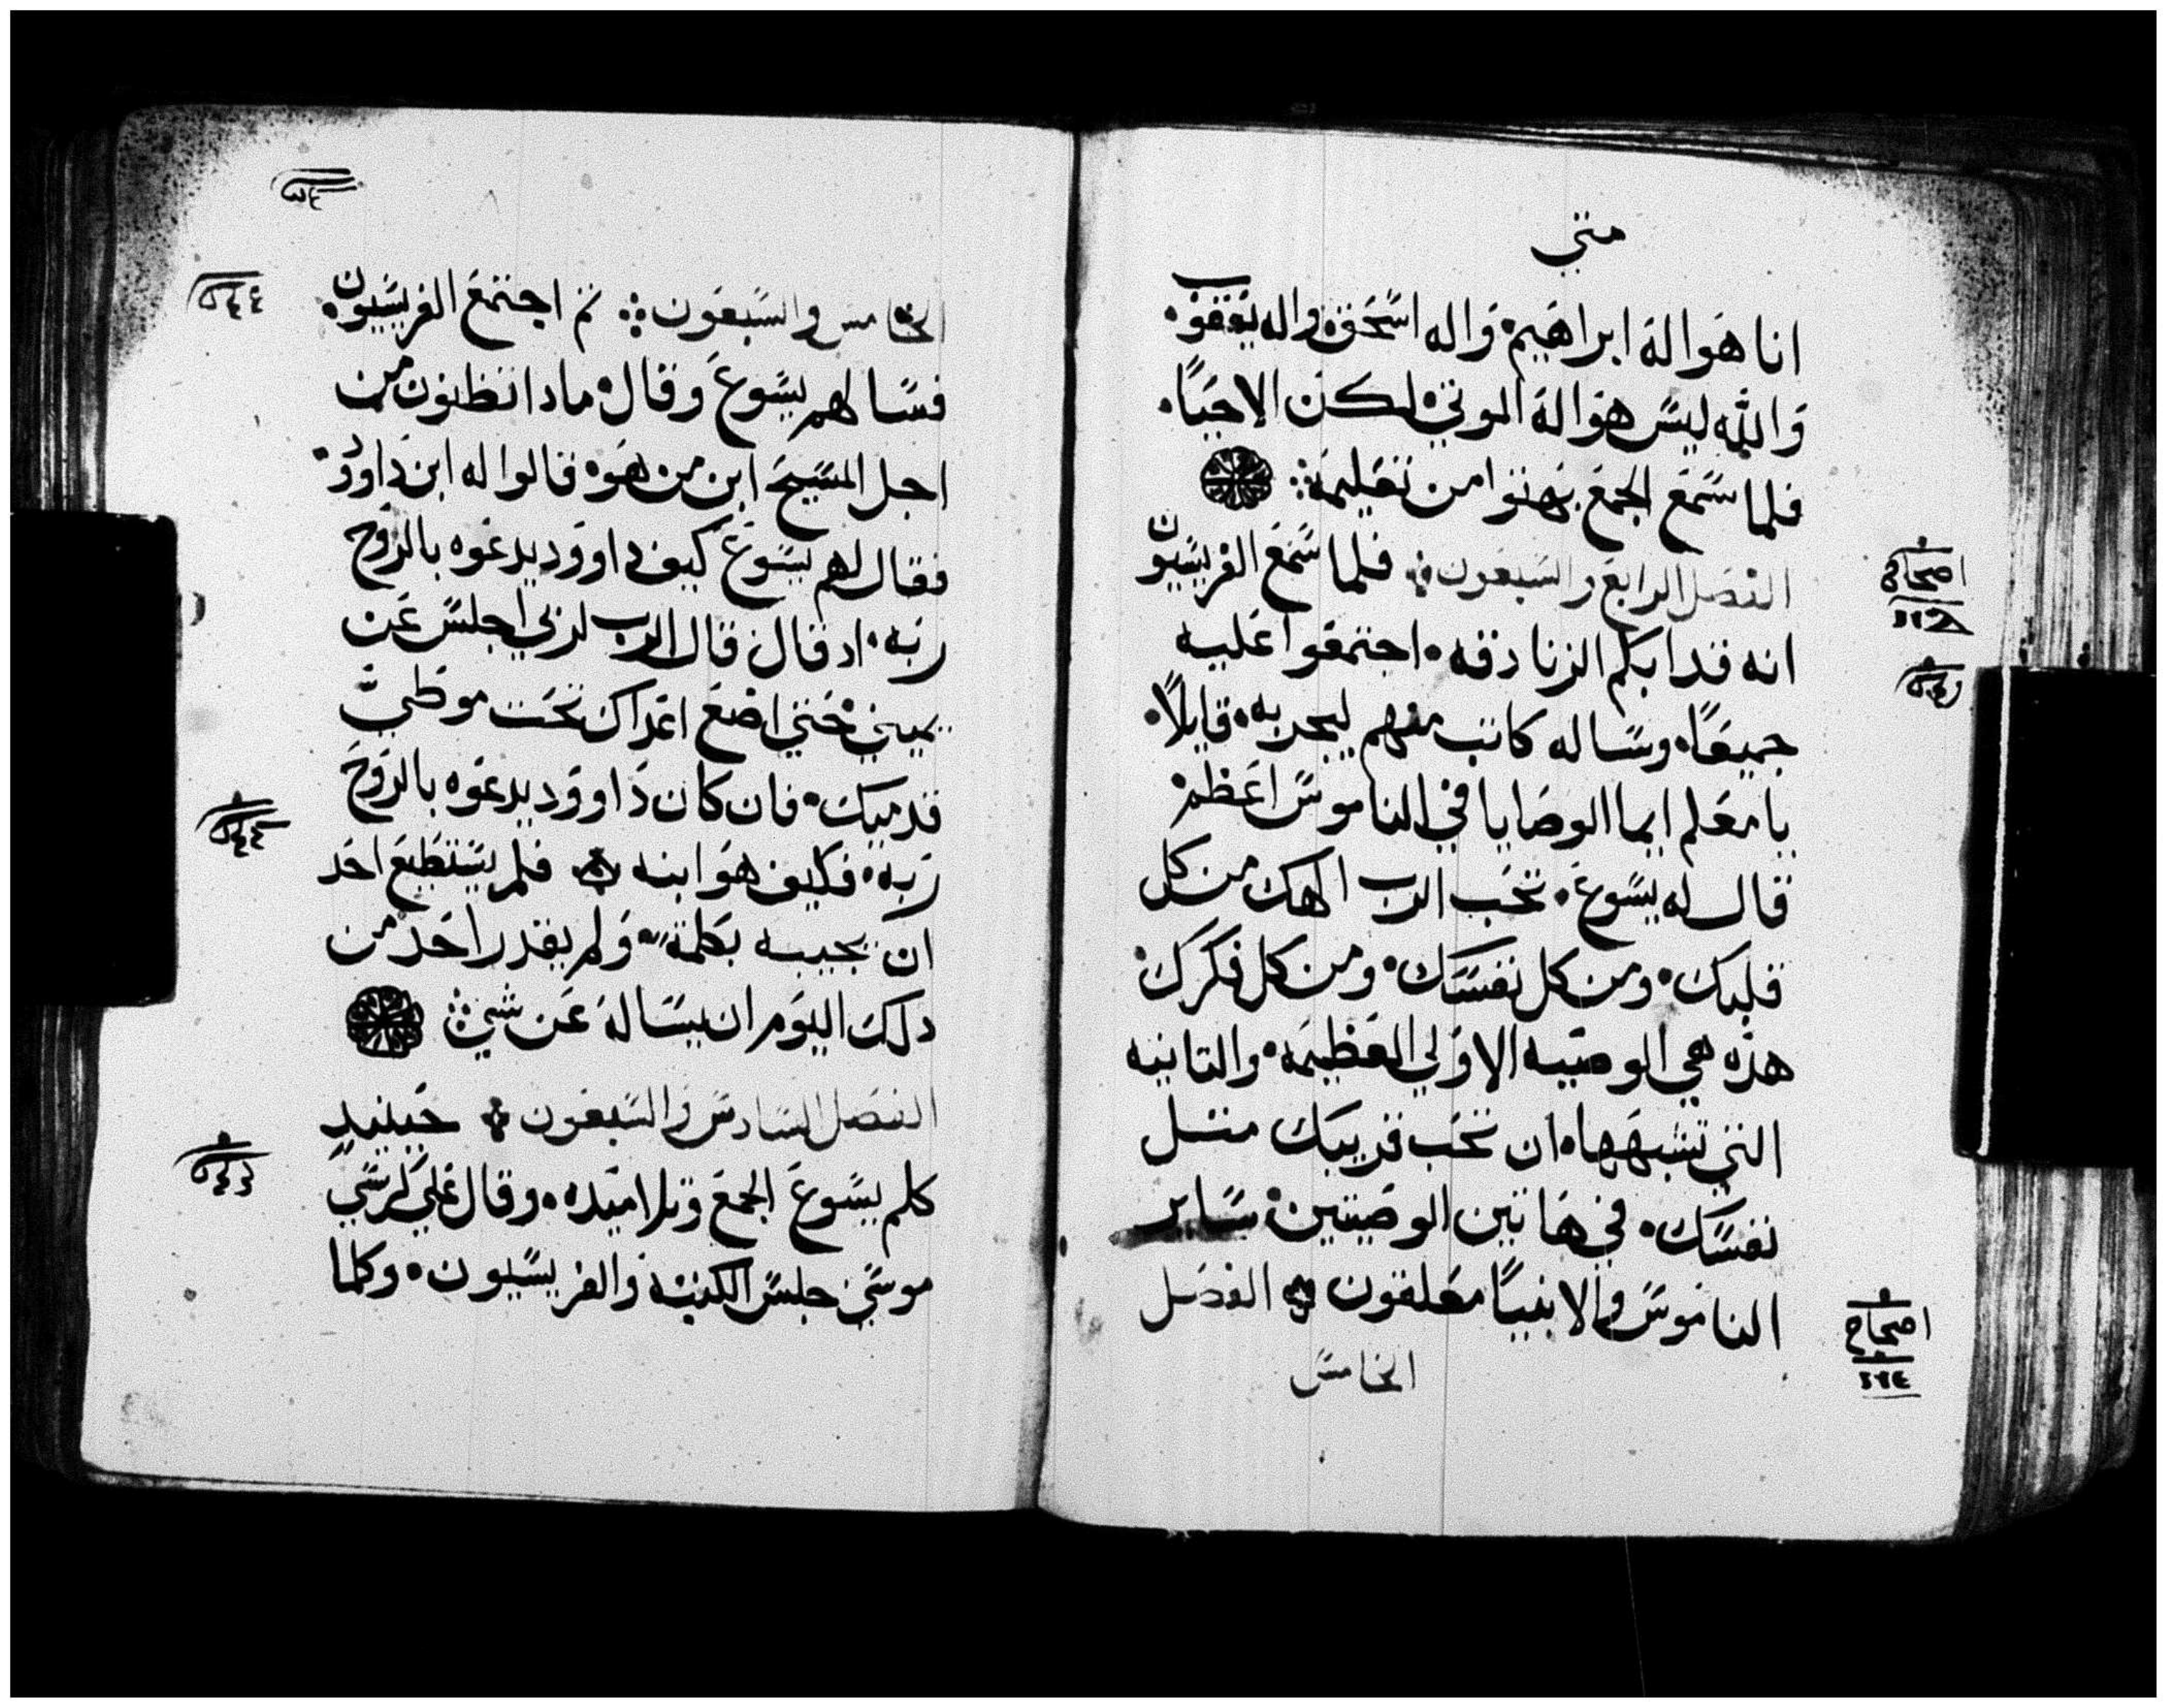 متي
انا هو اله ابراهيم واله اسحق واله يعقوب
والله ليس هو اله الموتي لكن الاحيا
فلما سمع الجمع بهتوا من تعليمه
الفصل الرابع والسبعون فلما سمع الفريسيون
انه قد ابكم الزنادقه اجتمعوا عليه
جميعا وساله كاتب منهم ليجربه قايلا
يا معلم ايما الوصايا في الناموس اعظم
قال له يسوع تحب الرب الهك من كل
قلبك ومن كل نفسك ومن كل فكرك
هذه هي الوصيه الاولي العظيمه والثانيه
التي تشبهها ان تحب قريبك مثل
نفسك في هاتين الوصيتين ساير
الناموس والانبيا معلقون الفصل
الخامس
اصحاح
اصحاح
الخامس والسبعون ثم اجتمع الفريسيون
فسالهم يسوع وقال ماذا تظنون من
اجل المسيح ابن من هو قالوا له ابن داوود
فقال لهم يسوع كيف داوود يدعوه بالروح
ربه اد قال قال الرب لربي اجلس عن
يميني حتي اضع اعداك تحت موطي
قدميك فان كان داوود يدعوه بالروح
ربه فكيف هو ابنه فلم يستطيع احد
ان يجيبه بكلمة ولم يقدر احد من
دلك اليوم ان يساله عن شي
الفصل السادس والسبعون حينيد
كلم يسوع الجمع وتلاميده وقال علي كرسي
موسي جلس الكتبه والفريسيون وكلما